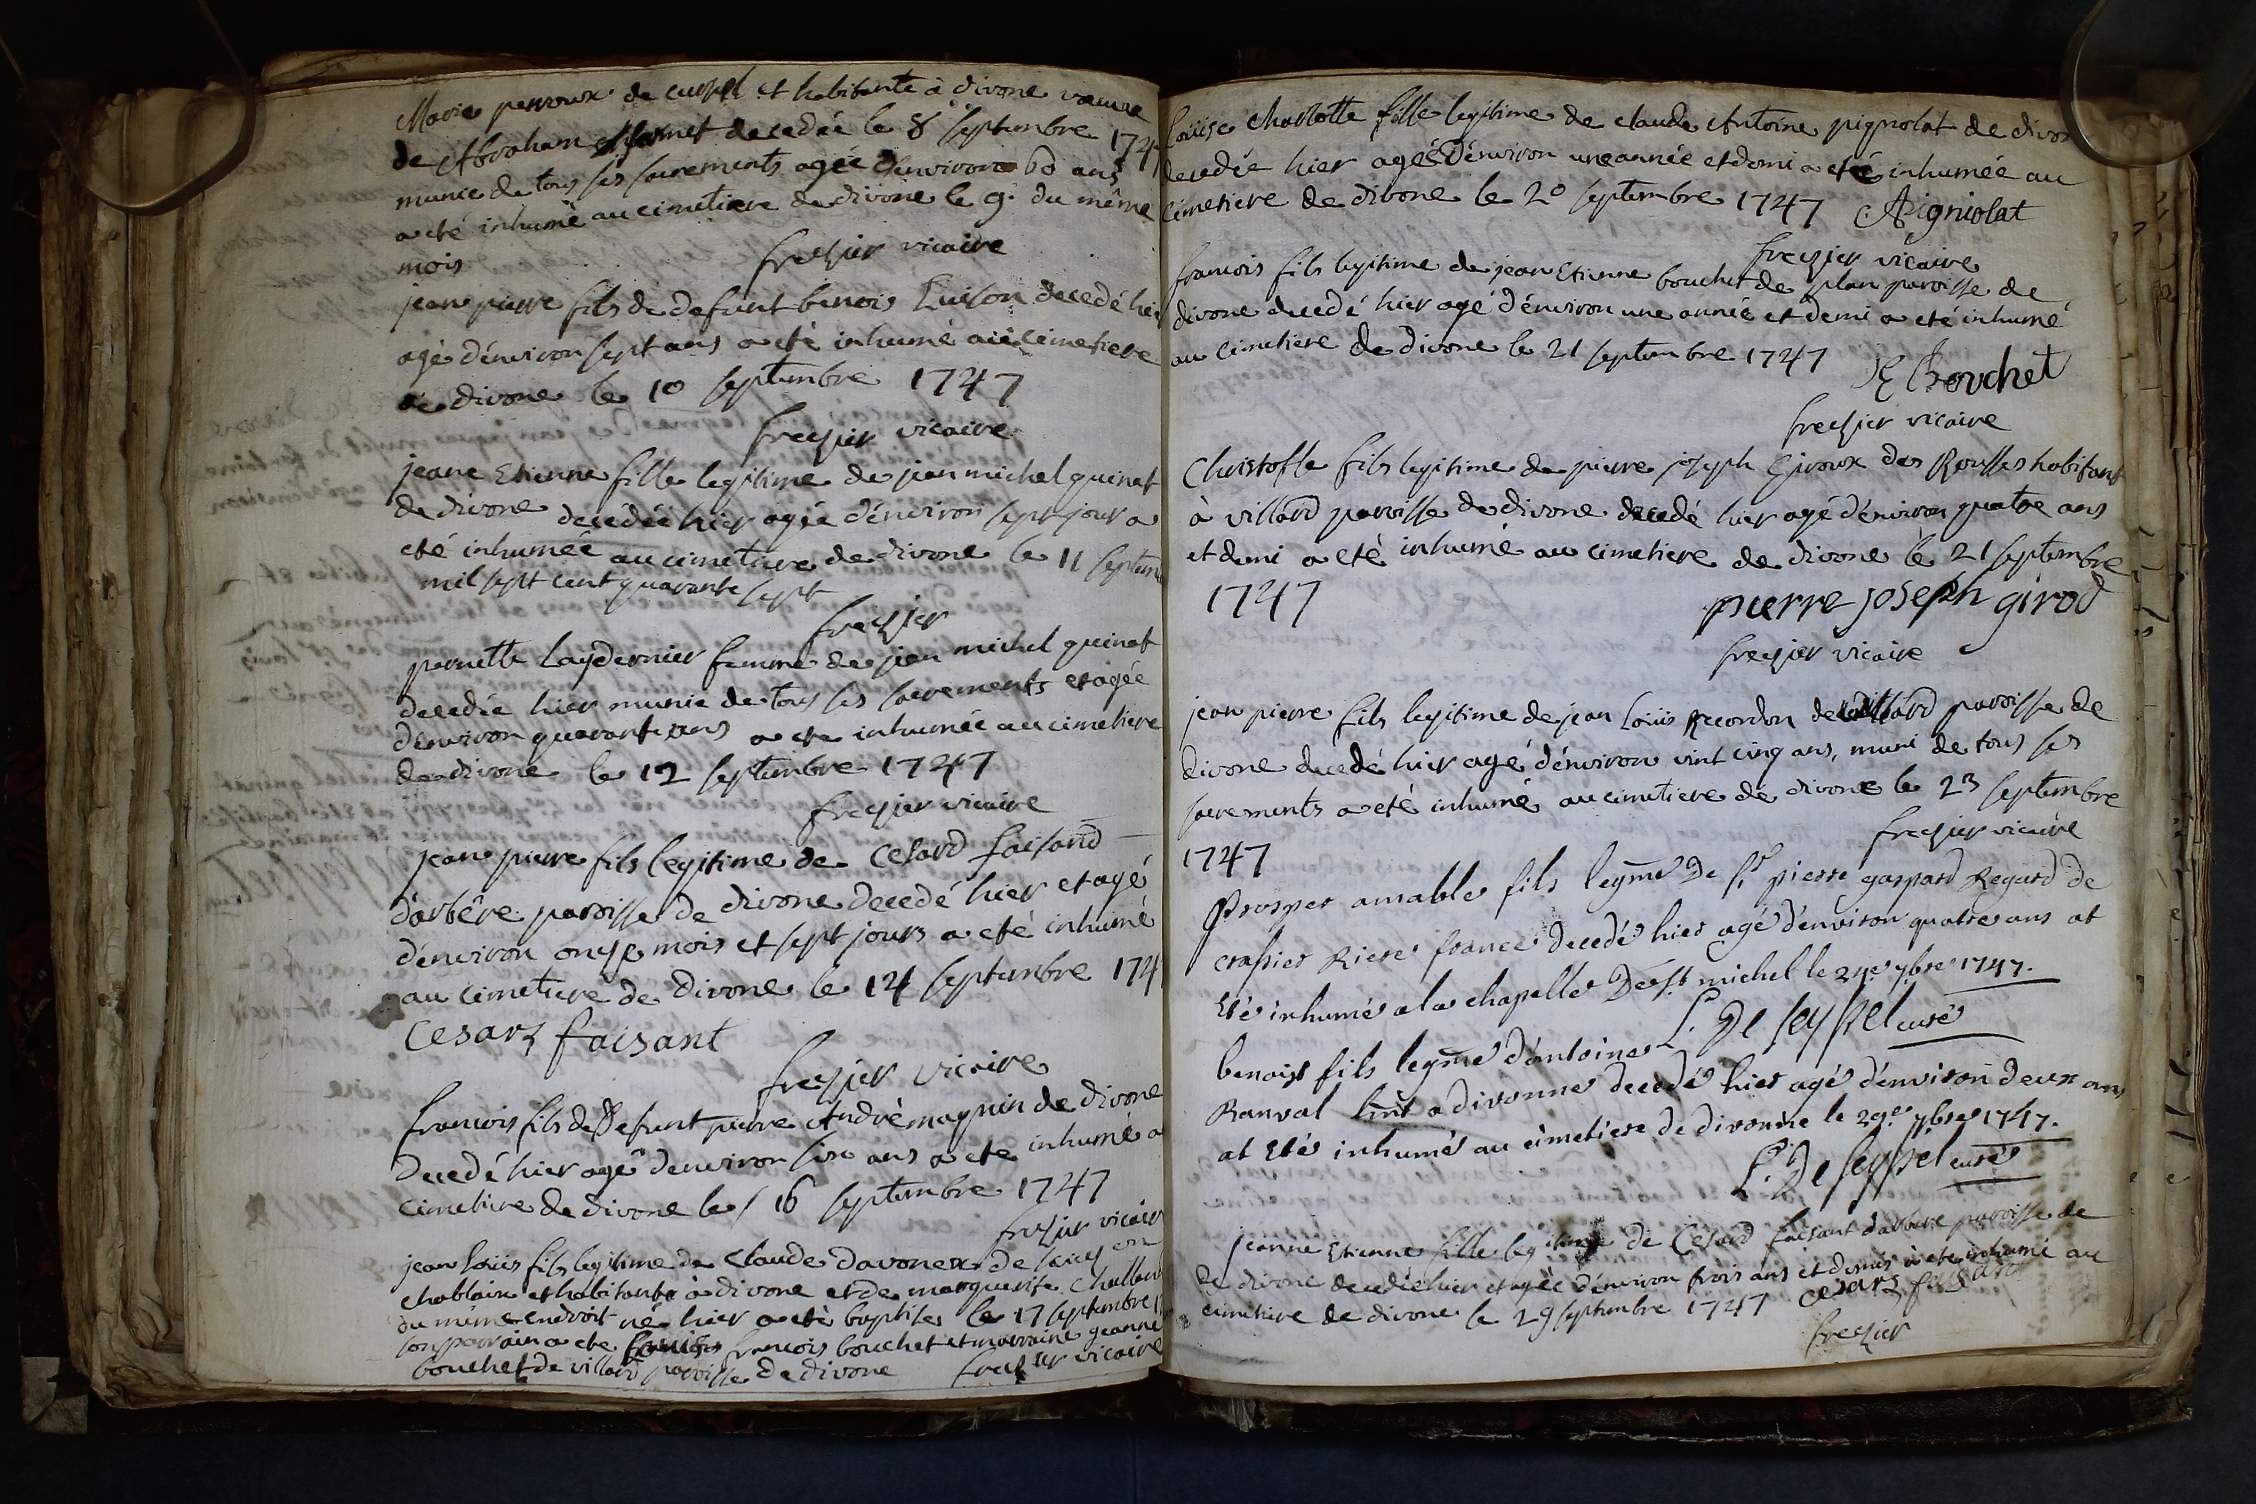 Marie perroux de et habitante à divone veuve
de Abraham decedée le 8 septembre 174
munie de tous ses sacrements agée d'environ 60 ans
a eté inhumé au cimetiere de divone le 9. du même
mois
frezier vicaire
jean pierre fils de defunt benois decedé hie
agé d'environ sept ans a eté inhumé au cimetiere
de divone le 10 septembre 1747
frezier vicaire
jeane Etienne fille legitime de jean michel guinat
de divone decédée hier agée d'environ sept jour a
eté inhumée au cimetiere de divone le 11 septem
mil sept cent quarante sept
frezier
pernette Laydernier femme de jean michel guinat
decedée hier munie de tous ses sacrements et agée
d'environ quarante ans a ete inhumée au cimetiere
de divone le 12 septembre 1747
frezier vicaire
jean pierre fils legitime de Cesard faisand
d'arbêre paroisse de divone decedé hier et agé
d'environ onze mois et sept jours a eté inhumé
au cimetiere de divone le 14 septembre 174
Cesarz faisant
frezier vicaire
francois fils de Defunt pierre André magnin de divone
decedé hier agé d'environ six ans a ete inhumé a
cimetiere de divone le 16 septembre 1747
frezier vicaire
jean louis fils legitime de Claude davonex de en
chablais et habitante à divone et de marguerite
du même endroit né hier a eté baptisé le 17 septembre
son parrain a ete francois bouchet et marraine jeanne
bouchet de villard paroisse de divone frezier vicaire
Loüise charlotte fille legitime de claude Antoine pignolat de divon
decedée hier agée d'environ une année et demi a eté inhumée au
cimetiere de divone le 20 septembre 1747 Pigniolat
frezier vicaire
francois fils legitime de jean Etienne bouchet de plan paroisse de
divone decedé hier agé d'environ une année et demi a eté inhumé
au cimetiere de divone le 21 septembre 1747
JE Bouchet
frezier vicaire
Christofle fils legitime de pierre joseph Giroux des Rousses habitant
à villard paroisse de divone decedé hier agé d'environ quatre ans
et demi a eté inhumé au cimetiere de divone le 21 septembre
1747
pierre joseph girod
frezier vicaire
jean pierre fils legitime de jean Loüis Recordon de villard paroisse de
divone decedé hier agé d'environ vint cinq ans, muni de tous ses
sacrements a eté inhumé au cimetiere de divone le 23 septembre
1747
frezier vicaire
Prosper amable fils legme de Sr pierre gaspard Regard de
crassier Riere france decedé hier agé d'environ quatre ans at
Eté inhumé a la chapelle De st michel le 24e 7bre 1747.
L. De seyssel curé
benoist fils legme d'antoine
Ranval hnt a divonne decedé hier agé d'environ deux ans
at Eté inhumé au cimetiere de divonne le 29e 7bre 1747.
L. De seyssel curé
jeanne Etienne fille legitime de Cesard faisant d'arbere paroisse de
de divone decedée hier et agée d'environ trois ans et demis a ete inhumé au
cimetiere de divone le 29 septembre 1747 cesarz faisant
frezier